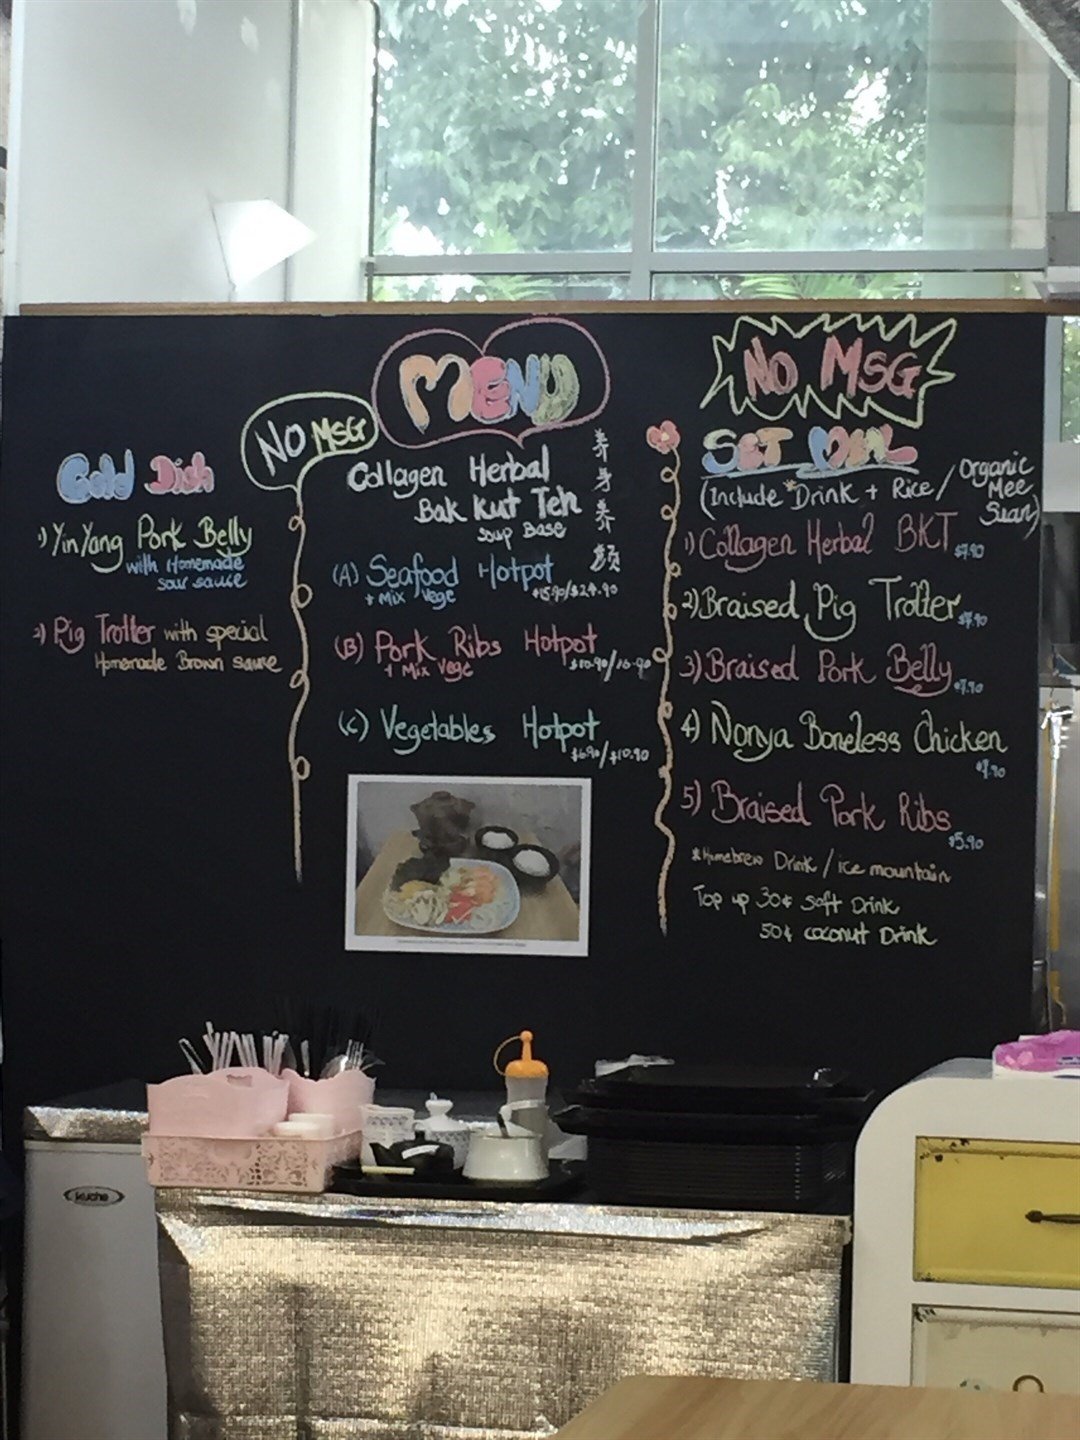 MENU
NO MSG
Cold Dish
1) Yin Yang Pork Belly
with Homemade
sour sauce
2) Pig Trotter with special
Homemade Brown sauce
Collagen Herbal
Bak Kut Teh
soup Base
养身养颜
(A) Seafood Hotpot
+ Mix Vege
$15.90/$24.90
(B) Pork Ribs Hotpot
+ Mix Vege
$10.90/16.90
(C) Vegetables Hotpot
$6.90/$10.90
NO MSG
SET MEAL
(Include *Drink + Rice / Organic
Mee
Suan)
1) Collagen Herbal BKT $7.90
2) Braised Pig Trotter $7.90
3) Braised Pork Belly $7.90
4) Nonya Boneless Chicken
$7.90
5) Braised Pork Ribs
$5.90
*Homebrew Drink / ice mountain
Top up 30¢ Soft Drink
50¢ coconut Drink
kuche